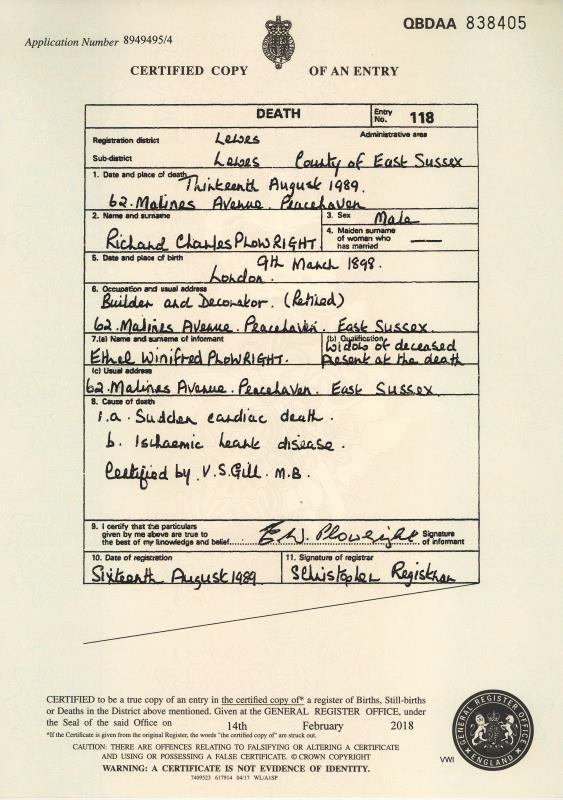 QBDAA 838405
Application Number 8949495/4
CERTIFIED COPY OF AN ENTRY
DEATH Entry No. 118
Registration district Lewes Administrative area
Sub-district Lewes County of East Sussex
1. Date and place of death Thirteenth August 1989.
62. Malines Avenue. Peacehaven
2. Name and surname
Richard Charles PLOWRIGHT
3. Sex Male
4. Maiden surname of woman who has married —
5. Date and place of birth 9th March 1898.
London.
6. Occupation and usual address
Builder and Decorator. (Retired)
62. Malines Avenue. Peacehaven. East Sussex.
7.(a) Name and surname of informant
Ethel Winifred PLOWRIGHT.
(b) Qualification
Widow of deceased
Present at the death
(c) Usual address
62. Malines Avenue. Peacehaven. East Sussex.
8. Cause of death
1.a. Sudden cardiac death.
b. Ischaemic heart disease.
Certified by. V.S. Gill. M.B.
9. I certify that the particulars
given by me above are true to
the best of my knowledge and belief E W. Plowright Signature of informant
10. Date of registration
Sixteenth August 1989
11. Signature of registrar
SChristopher Registrar
CERTIFIED to be a true copy of an entry in the certified copy of* a register of Births, Still-births
or Deaths in the District above mentioned. Given at the GENERAL REGISTER OFFICE, under
the Seal of the said Office on 14th February 2018
*If the Certificate is given from the original Register, the words "the certified copy of" are struck out.
CAUTION: THERE ARE OFFENCES RELATING TO FALSIFYING OR ALTERING A CERTIFICATE
AND USING OR POSSESSING A FALSE CERTIFICATE. © CROWN COPYRIGHT
WARNING: A CERTIFICATE IS NOT EVIDENCE OF IDENTITY.
7409523 617914 04/17 WL/A1SP
VWI
GENERAL REGISTER OFFICE
ENGLAND